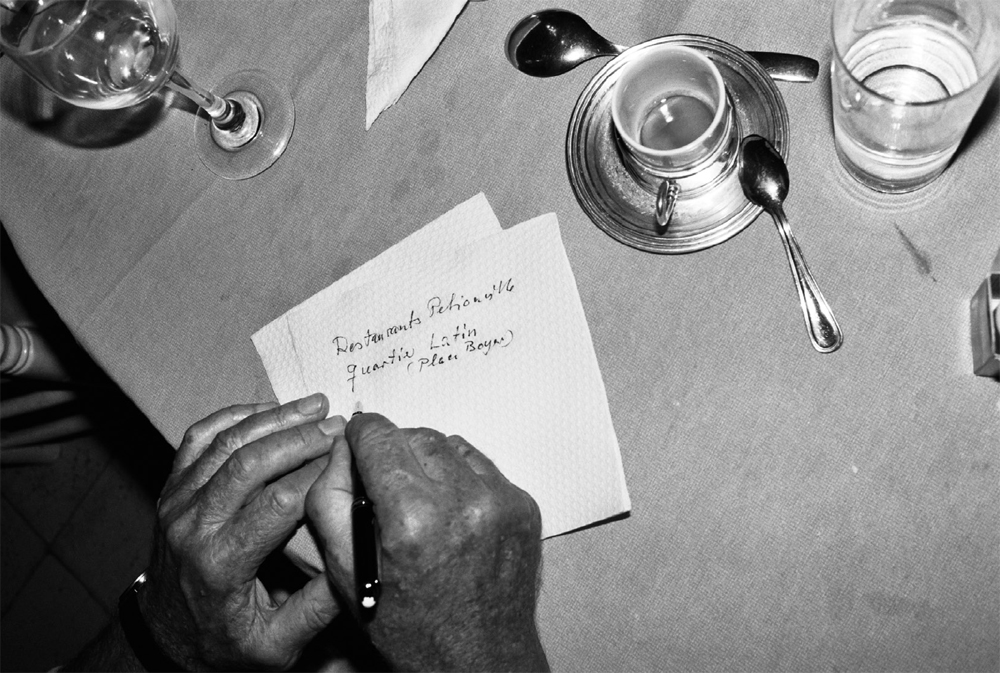 Restaurants Petionville
Quartier Latin
(Place Boyer)